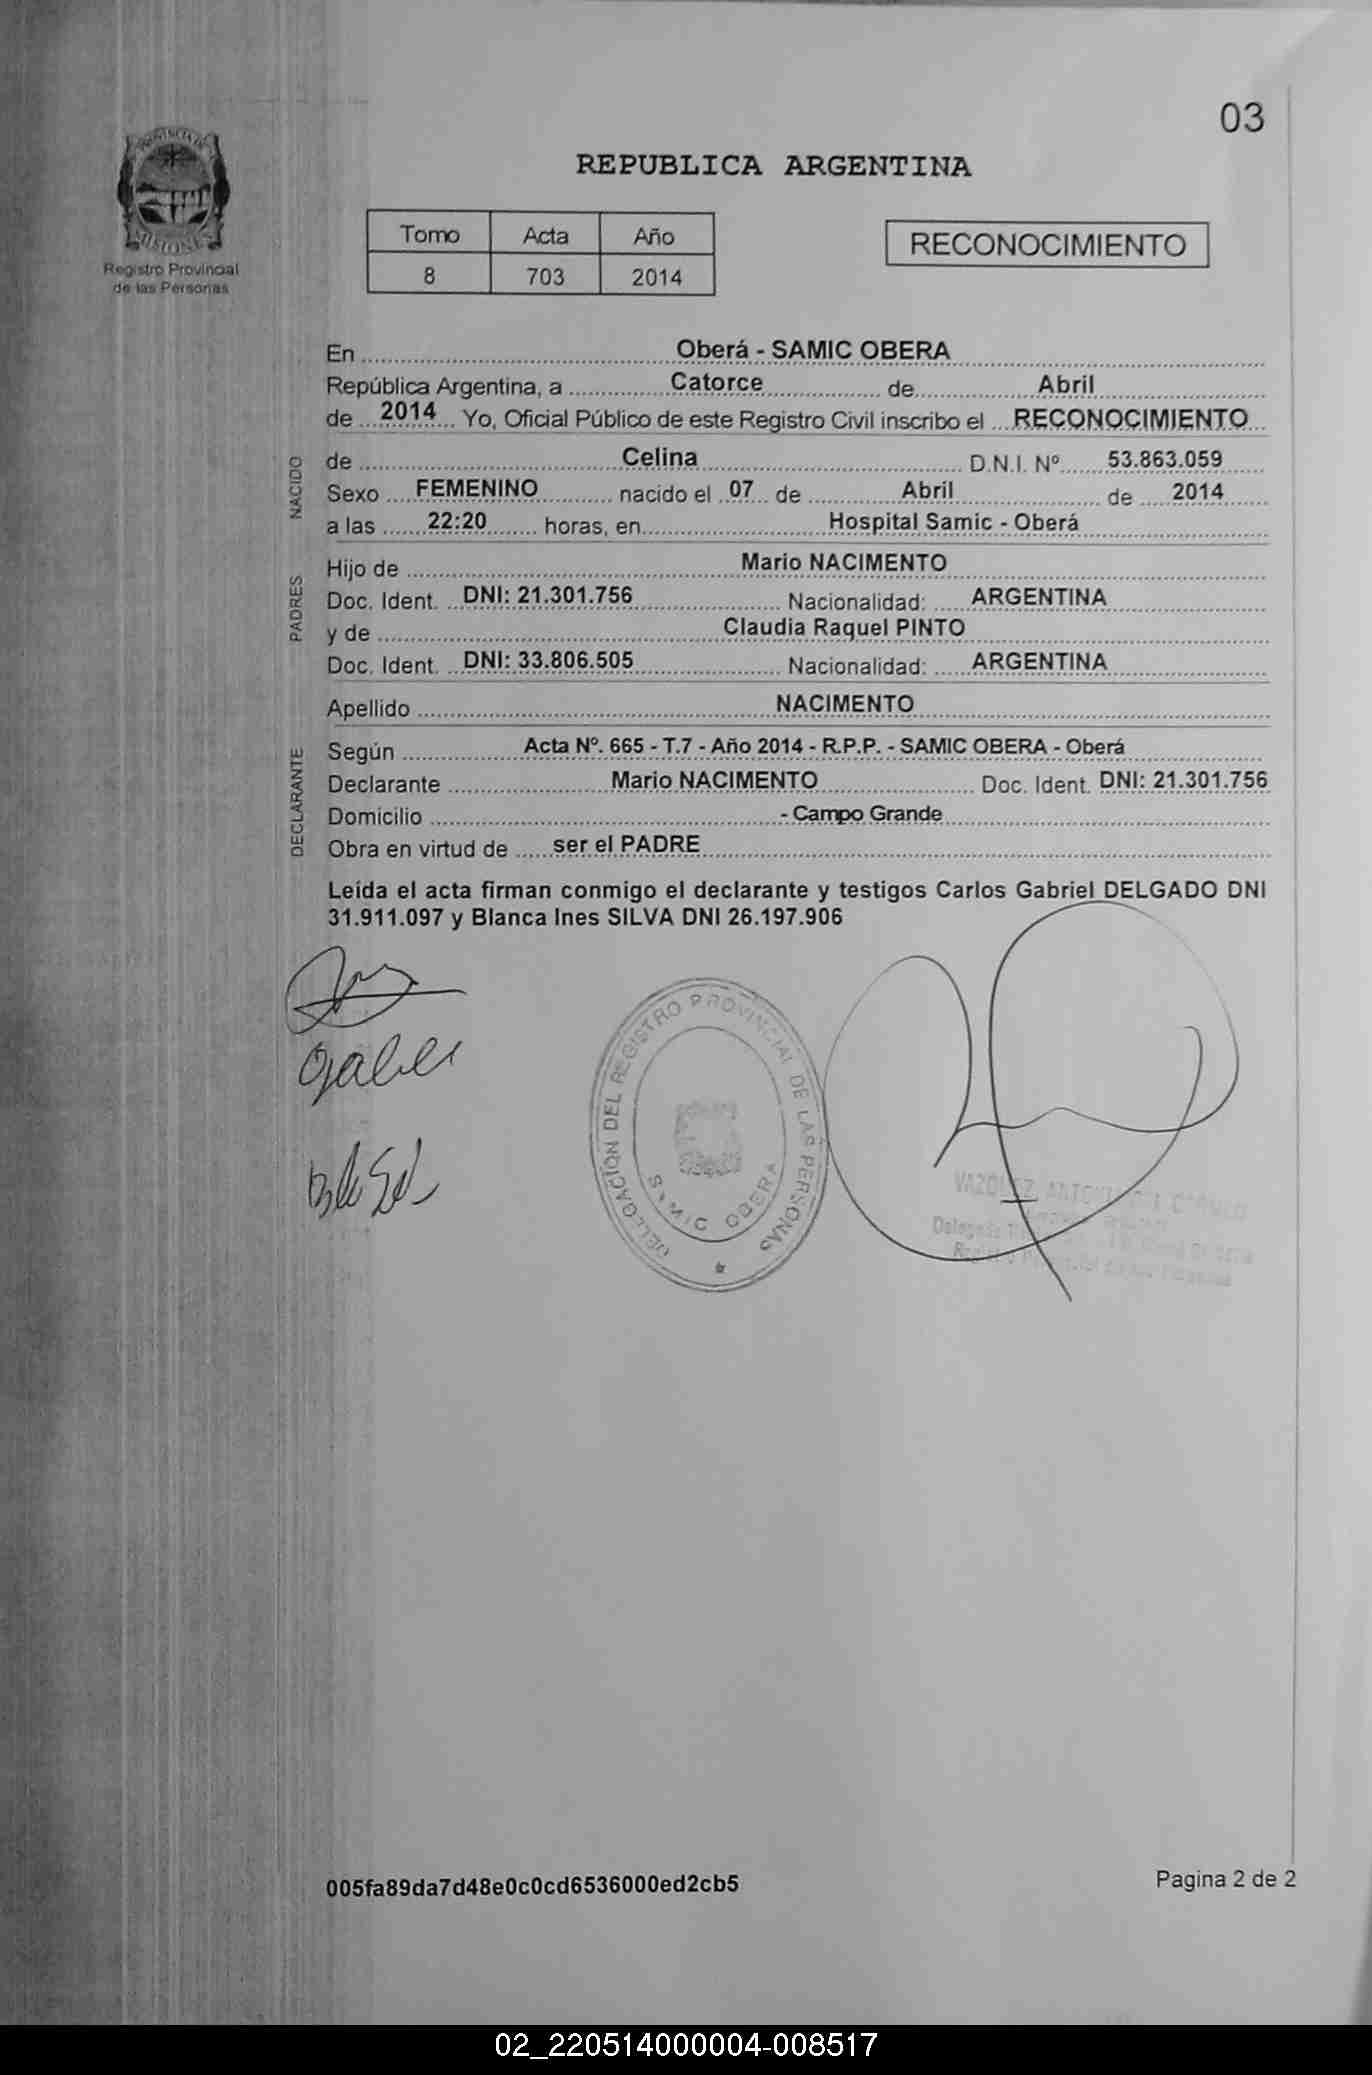 03
PROVINCIA DE
MISIONES
Registro Provincial
de las Personas
REPUBLICA ARGENTINA
Tomo Acta Año
8 703 2014
RECONOCIMIENTO
En Oberá - SAMIC OBERA
República Argentina, a Catorce de Abril
de 2014 Yo, Oficial Público de este Registro Civil inscribo el RECONOCIMIENTO
NACIDO
de Celina D.N.I. Nº 53.863.059
Sexo FEMENINO nacido el 07 de Abril de 2014
a las 22:20 horas, en Hospital Samic - Oberá
PADRES
Hijo de Mario NACIMENTO
Doc. Ident. DNI: 21.301.756 Nacionalidad: ARGENTINA
y de Claudia Raquel PINTO
Doc. Ident. DNI: 33.806.505 Nacionalidad: ARGENTINA
Apellido NACIMENTO
DECLARANTE
Según Acta Nº. 665 - T.7 - Año 2014 - R.P.P. - SAMIC OBERA - Oberá
Declarante Mario NACIMENTO Doc. Ident. DNI: 21.301.756
Domicilio - Campo Grande
Obra en virtud de ser el PADRE
Leída el acta firman conmigo el declarante y testigos Carlos Gabriel DELGADO DNI
31.911.097 y Blanca Ines SILVA DNI 26.197.906
DELEGACION DEL REGISTRO PROVINCIAL DE LAS PERSONAS
SAMIC OBERA
005fa89da7d48e0c0cd6536000ed2cb5
Pagina 2 de 2
02_220514000004-008517